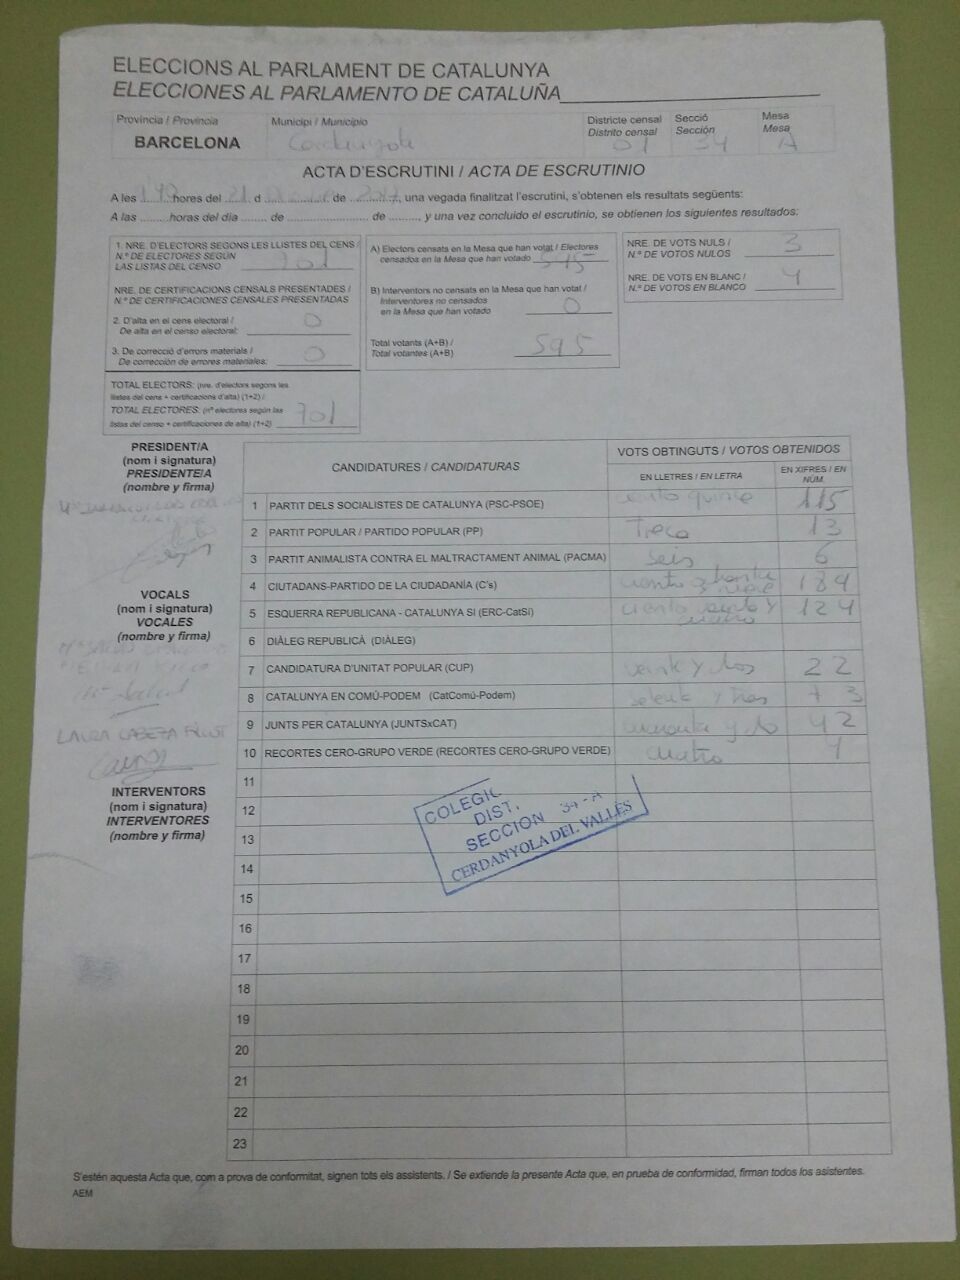 ELECCIONS AL PARLAMENT DE CATALUNYA
ELECCIONES AL PARLAMENTO DE CATALUÑA
Província / Provincia
BARCELONA
Municipi / Municipio
Districte censal
Distrito censal
01
Secció
Sección
34
Mesa
Mesa
A
ACTA D'ESCRUTINI / ACTA DE ESCRUTINIO
A les hores del 21 d de , una vegada finalitzat l'escrutini, s'obtenen els resultats següents:
A las ........ horas del día ....... de ...................... de ........, y una vez concluido el escrutinio, se obtienen los siguientes resultados:
1. NRE. D'ELECTORS SEGONS LES LLISTES DEL CENS /
N.º DE ELECTORES SEGÚN
LAS LISTAS DEL CENSO 701
NRE. DE CERTIFICACIONS CENSALS PRESENTADES /
N.º DE CERTIFICACIONES CENSALES PRESENTADAS
2. D'alta en el cens electoral /
De alta en el censo electoral: 0
3. De correcció d'errors materials /
De corrección de errores materiales: 0
TOTAL ELECTORS: (nre. d'electors segons les
llistes del cens + certificacions d'alta) (1+2) /
TOTAL ELECTORES: (nº electores según las
listas del censo + certificaciones de alta) (1+2) 701
A) Electors censats en la Mesa que han votat / Electores
censados en la Mesa que han votado 595
B) Interventors no censats en la Mesa que han votat /
Interventores no censados
en la Mesa que han votado 0
Total votants (A+B) /
Total votantes (A+B) 595
NRE. DE VOTS NULS /
N.º DE VOTOS NULOS 3
NRE. DE VOTS EN BLANC /
N.º DE VOTOS EN BLANCO 4
PRESIDENT/A
(nom i signatura)
PRESIDENTE/A
(nombre y firma)
VOCALS
(nom i signatura)
VOCALES
(nombre y firma)
LAURA CABEZA
INTERVENTORS
(nom i signatura)
INTERVENTORES
(nombre y firma)
CANDIDATURES / CANDIDATURAS
VOTS OBTINGUTS / VOTOS OBTENIDOS
EN LLETRES / EN LETRA
EN XIFRES / EN NÚM.
1 PARTIT DELS SOCIALISTES DE CATALUNYA (PSC-PSOE) ciento quince 115
2 PARTIT POPULAR / PARTIDO POPULAR (PP) Trece 13
3 PARTIT ANIMALISTA CONTRA EL MALTRACTAMENT ANIMAL (PACMA) seis 6
4 CIUTADANS-PARTIDO DE LA CIUDADANÍA (C's) ciento ochenta y nueve 189
5 ESQUERRA REPUBLICANA - CATALUNYA SI (ERC-CatSí) ciento veinte y cuatro 124
6 DIÀLEG REPUBLICÀ (DIÀLEG)
7 CANDIDATURA D'UNITAT POPULAR (CUP) veinte y dos 22
8 CATALUNYA EN COMÚ-PODEM (CatComú-Podem) setenta y tres 73
9 JUNTS PER CATALUNYA (JUNTSxCAT) cuarenta y dos 42
10 RECORTES CERO-GRUPO VERDE (RECORTES CERO-GRUPO VERDE) cuatro 4
11
12
13
14
15
16
17
18
19
20
21
22
23
COLEGIO
DIST.
SECCION 34-A
CERDANYOLA DEL VALLES
S'estén aquesta Acta que, com a prova de conformitat, signen tots els assistents. / Se extiende la presente Acta que, en prueba de conformidad, firman todos los asistentes.
AEM